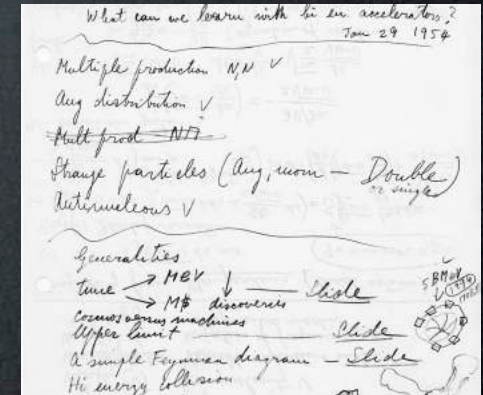 What can we learn with hi en. accelerators?
Jan 29 1954
Multiple production N,N √
Ang distribution √
Mult prod Nπ
Strange particles (Ang, mom — Double)
or single
Antinucleons √
Generalities
time → MEV
→ M$ discoveries — Slide
Cosmos versus machines
Upper limit — Slide
A simple Feynman diagram — Slide
Hi energy collision